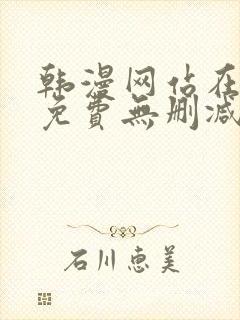 韩漫网站在
免費無删减
石川惠美